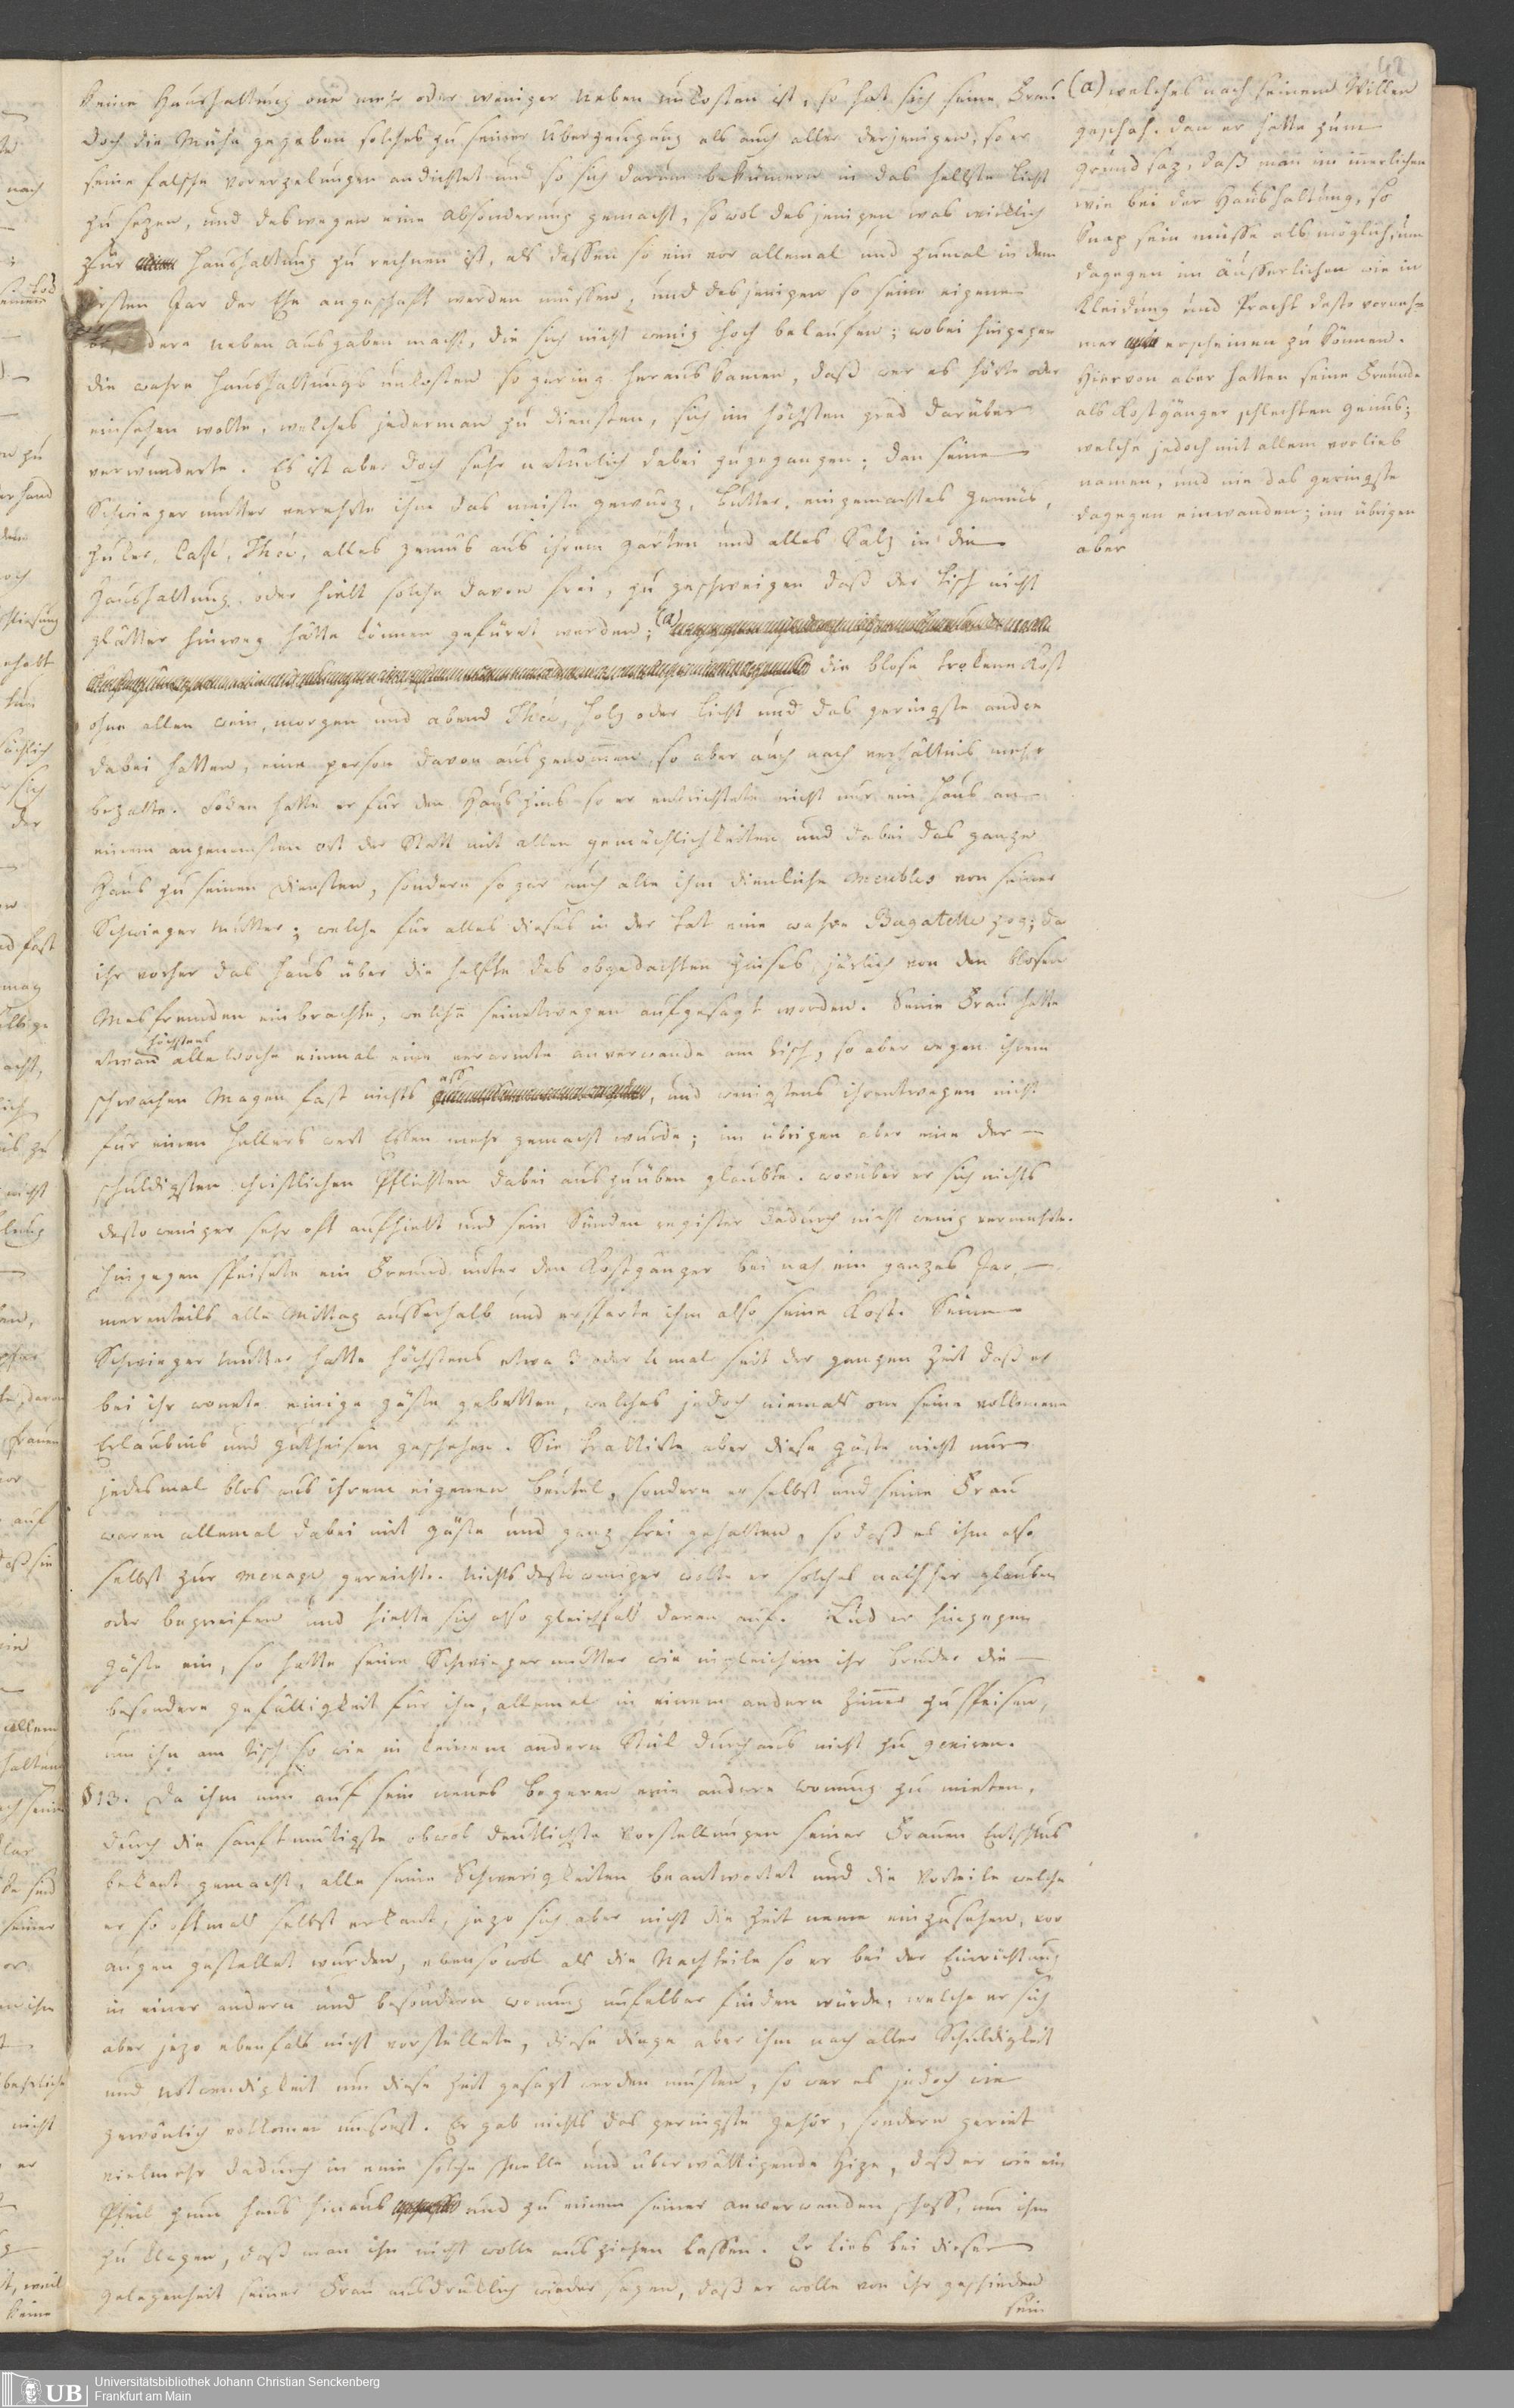 48
keine Haushaltung one mehr oder weniger Neben unkosten ist, so hat sich seine Frau
doch die Mühe gegeben solches zu seiner Überzeugung als auch aller derjenigen, so er
seine falsche vorerzelungen andichtet und so sich darum bekümern in das hellste Licht
zu sezen, und deswegen eine absonderung gemacht, so wol desjenigen was wirklich
zur Haushaltung zu rechnen ist, als dessen so ein vor allemal und zumal in dem
ersten Jar der Ehe angeschaft werden müssen, und desjenigen so seine eigene
dere neben ausgaben macht, die sich nicht wenig hoch belaufen; wobei hingegen
die wahre Haushaltungs unkosten so gering heraus kamen, daß wer es hörte oder
einsehen wolte, welches jederman zu diensten, sich im höchsten grad darüber
verwunderte. Es ist aber doch sehr natürlich dabei zugegangen; dan seine
Schwieger mutter verehrte ihm das meiste gewürz, butter, eingemachtes gemüs,
Zuker, Caffé, Thée, alles gemüs aus ihrem garten und alles Salz in die
Haushaltung, oder hielt solche davon frei, zu geschweigen daß der Tisch nicht
glatter hinweg hätte können gefürt werden; (a)
die blose trokene Kost
ohne allen wein, morgen und abend Thée, Holz oder Licht und das geringste andre
dabei hatten, eine person davon ausgenommen so aber auch nach verhältnis mehr
bezalte. Sodan hatte er für den Hauszins so er entrichtete nicht nur ein Haus an
einem angenemsten ort der Statt mit allen gemächlichkeiten und dabei das ganze
Haus zu seinen diensten, sondern so gar auch alle ihm dienliche Meubles von seiner
Schwieger mutter; welche für alles dieses in der tat eine wahre Bagatelle zog; da
ihr vorher das Haus über die helfte des obgedachten Zinses järlich von den blosen
Mesfremden einbrachte, welchen seinetwegen aufgesagt worden. Seine Frau hatte
höchstens
etwan alle Woche einmal eine verarmte anverwande am tisch, so aber wegen ihrem
ass
schwachen Magen fast nichts, und wenigstens ihrentwegen nicht
für einen Hellers wert Essen mehr gemacht wurde; im übrigen aber eine der
schuldigsten christlichen Pflichten dabei auszuüben glaubte. worüber er sich nichts
desto weniger sehr oft aufhielt und sein Sünden register dadurch nicht wenig vermehrte.
Hingegen speisete ein Freund unter den Kostgänger bei nah ein ganzes Jar,
merenteils alle Mittag ausserhalb und ersparte ihm also seine Kost. Seine
Schwieger Mutter hatte höchstens etwa 3 oder 4 mal seit der ganzen Zeit daß er
bei ihr wonete einige gäste gebetten, welches jedoch niemals one seine vollkomene
Erlaubnis und gutheisen geschehen. Sie traktirte aber diese gäste nicht nur
jedesmal blos aus ihrem eigenen beutel, sondern er selbst und seine Frau
waren allemal dabei mit gäste und ganz frei gehalten, so daß es ihm also
selbst zur menage gereichte. Nichts desto weniger wolte er solches nachher glauben
oder begreifen und hielte sich also gleichfals daran auf. Lud er hingegen
gäste ein, so hatte seine Schwieger mutter wie ingleichem ihr bruder die
besondere gefälligkeit für ihn, allemal in einem andern Zimmer zu speisen,
um ihn am tisch so wie in keinem andern Stük durchaus nicht zu geniren.
§ 13. Da ihm nun auf sein neues begeren eine andere wonung zu mieten,
durch die sanftmütigste obwol deutlichste Vorstellungen seiner Frauen Entschlus
bekant gemacht, alle seine Schwerigkeiten beantwortet und die Vorteile welche
er so oftmals selbst erkant, jezo sich aber nicht die Zeit neme einzusehen, vor
augen gestellet wurden, ebensowol als die Nachteile so er bei der Einrichtung
in einer andern und besondern wonung unfelbar finden würde, welche er sich
aber jezo ebenfals nicht vorstellete, diese dinge aber ihm nach aller Schuldigkeit
und notwendigkeit um diese Zeit gesagt werden musten, so war es jedoch wie
gewönlich vollkomen umsonst. Er gab nichts das geringste gehör, sondern geriet
vielmehr dadurch in eine solche schnelle und überwältigende Hize, daß er wie ein
Pfeil zum Haus hinaus und zu einem seiner anverwanden schoss, um ihm
zu klagen, daß man ihn nicht wolle ausziehen lassen. Er lies bei dieser
gelegenheit seiner Frau ausdrüklich wieder sagen, daß er wolle von ihr geschieden
sein
(a) welches nach seinem Willen
geschah. dan er hatte zum
grund saz, daß man im innerlichen
wie bei der Haushaltung, so
knap sein müsse als möglich, um
dagegen im äusserlichen wie in
Kleidung und Pracht desto vorneh=
mer erscheinen zu können.
Hiervon aber hatten seine Freunde
als Kostgänger schlechten genus;
welche jedoch mit allem vorlieb
namen, und nie das geringste
dagegen einwanden; im übrigen
aber
UB Universitätsbibliothek Johann Christian Senckenberg
Frankfurt am Main